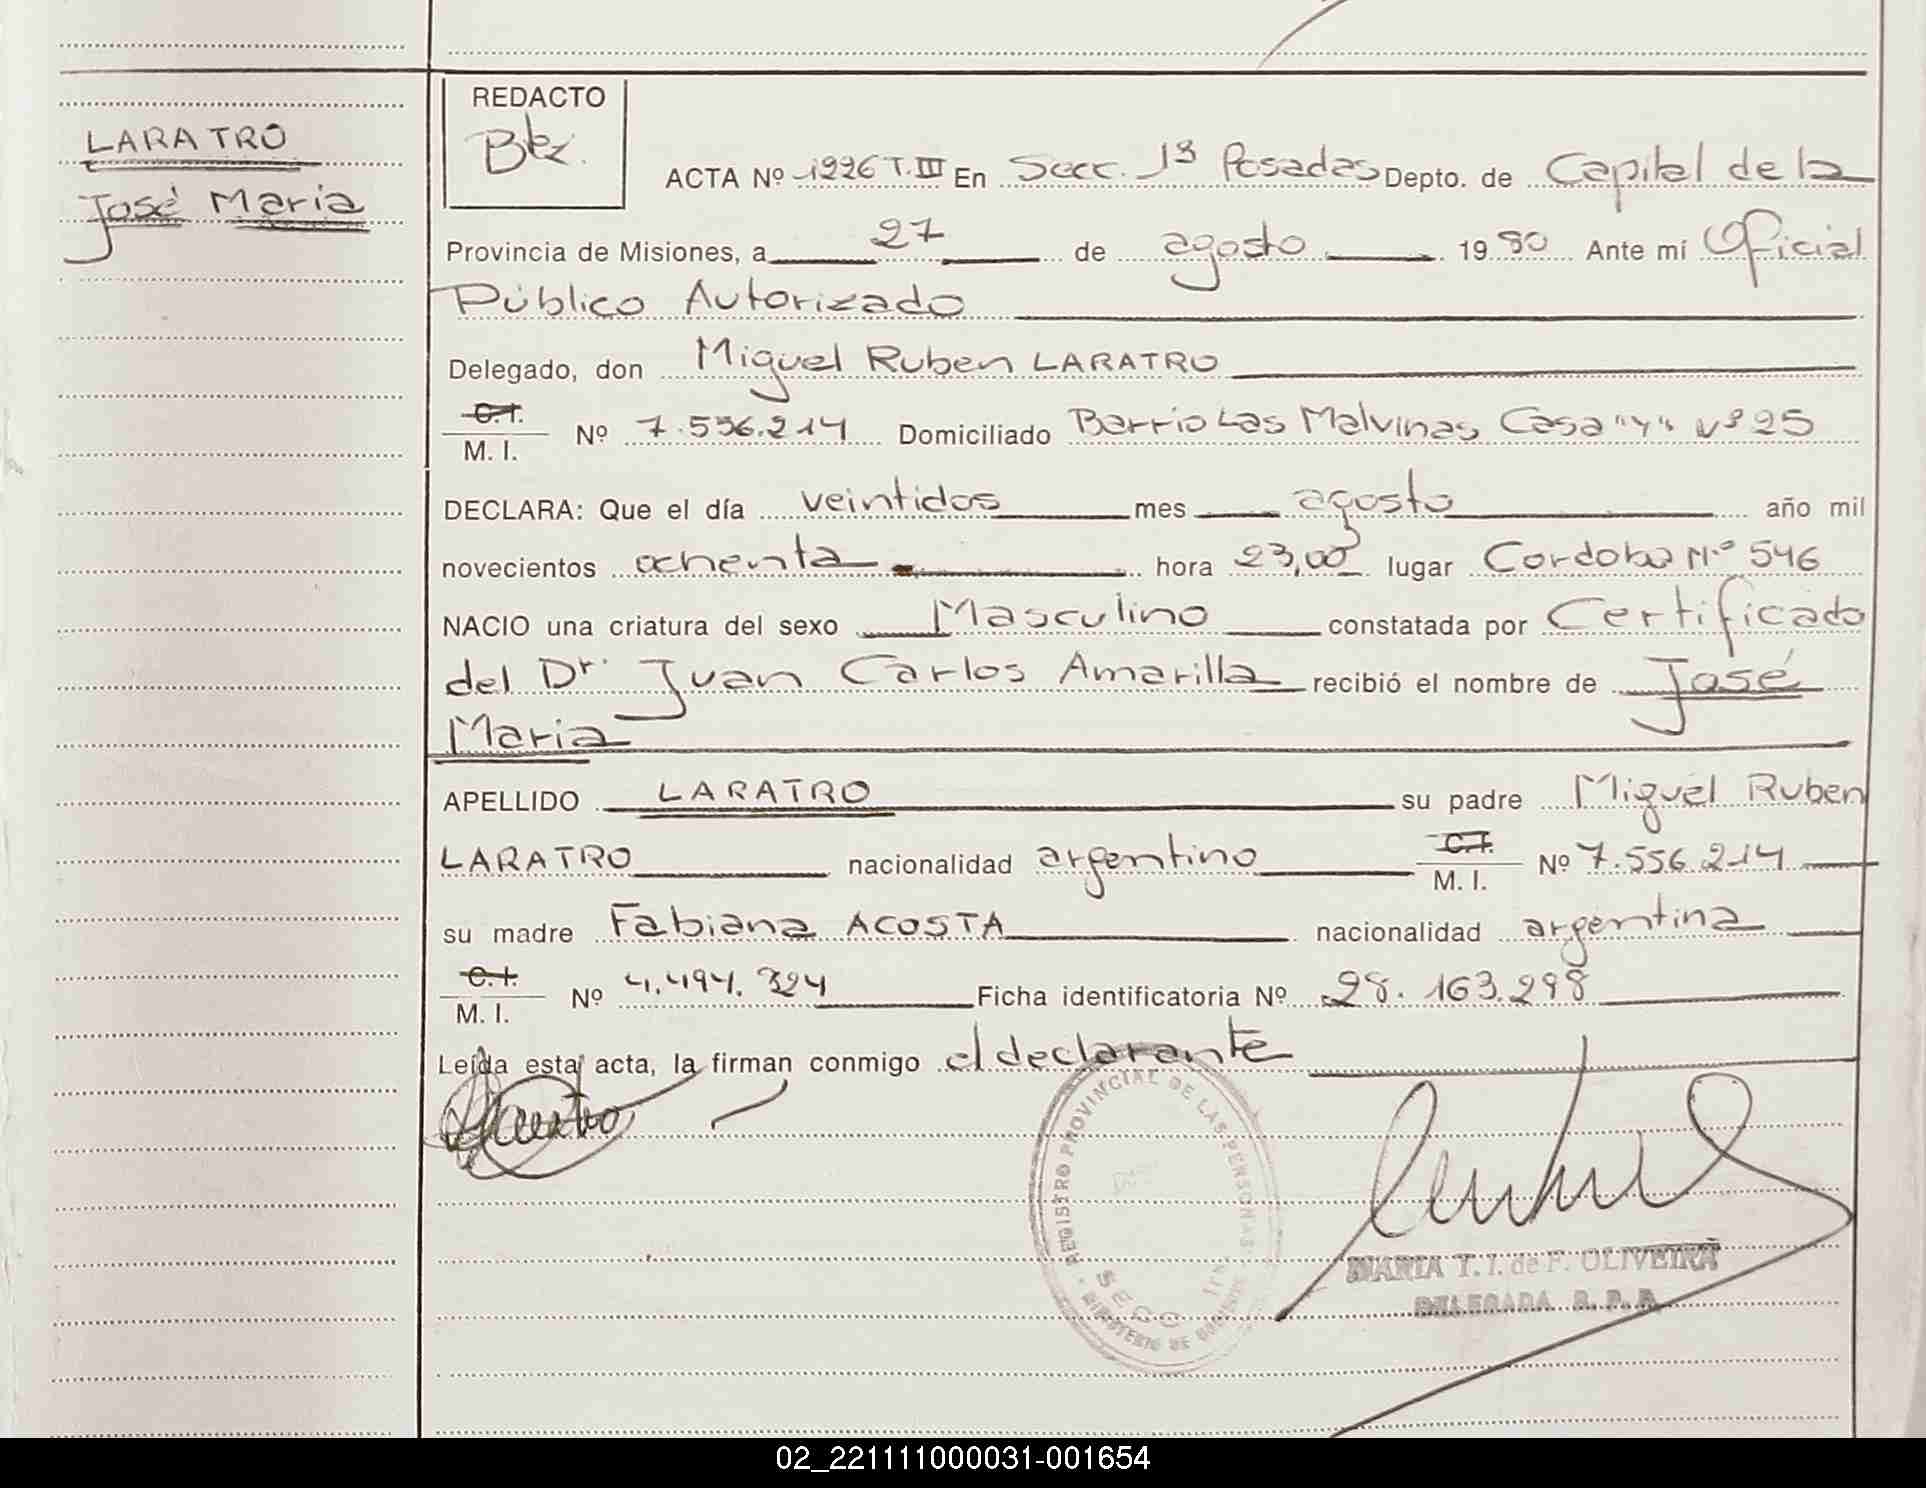 LARATRO
José Maria
REDACTO
Btz.
ACTA Nº 1226 T.III En Secc. 1ª Posadas Depto. de Capital de la
Provincia de Misiones, a 27 de agosto 1980 Ante mí Oficial
Público Autorizado
Delegado, don Miguel Ruben LARATRO
C.I.
M. I. Nº 7.556.214 Domiciliado Barrio Las Malvinas Casa "4" Nº 25
DECLARA: Que el día veintidos mes agosto año mil
novecientos ochenta hora 23,00 lugar Cordoba N.º 546
NACIO una criatura del sexo Masculino constatada por Certificado
del Dr. Juan Carlos Amarilla recibió el nombre de José
Maria
APELLIDO LARATRO su padre Miguel Ruben
LARATRO nacionalidad argentino C.I. M. I. Nº 7.556.214
su madre Fabiana ACOSTA nacionalidad argentina
C.I.
M. I. Nº 4.494.324 Ficha identificatoria Nº 28.163.298
Leída esta acta, la firman conmigo el declarante
REGISTRO PROVINCIAL DE LAS PERSONAS
SECC. 1ra.
MINISTERIO DE GOBIERNO
MARIA T. I. de F. OLIVEIRA
DELEGADA R. P. P.
02_221111000031-001654